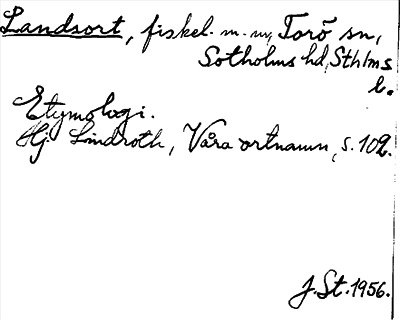 Landsort, fiskel. m. m., Torö sn,
Sotholms hd, Sthlms
l.
Etymologi.
Hj. Lindroth, Våra ortnamn, s. 102.
J. St. 1956.